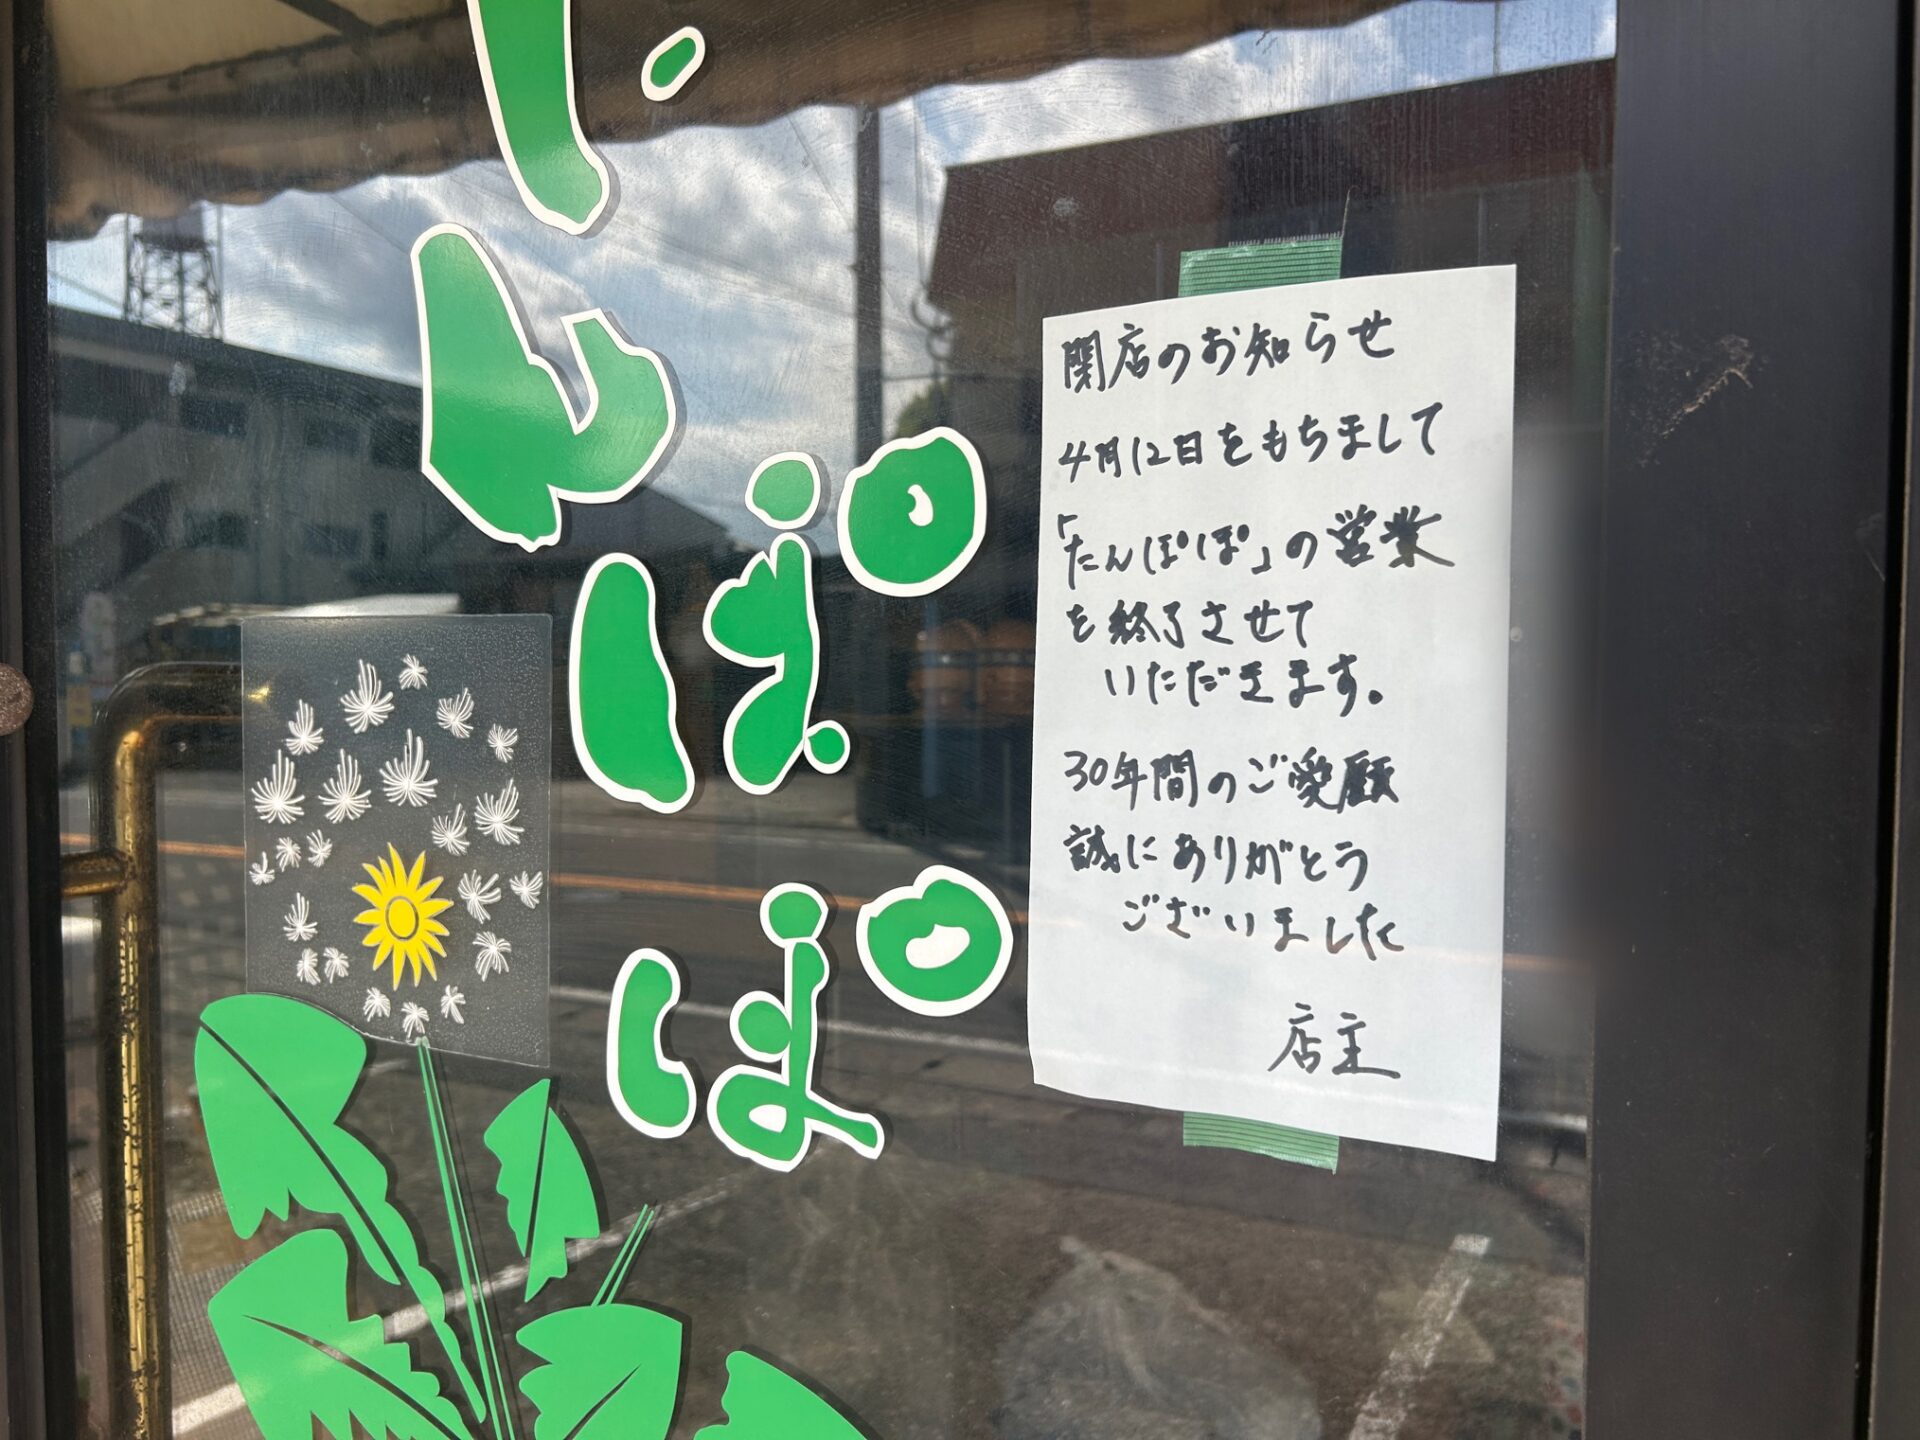 んぽぽ
閉店のお知らせ
4月12日をもちまして
「たんぽぽ」の営業
を終了させて
いただきます。
30年間のご愛顧
誠にありがとう
ございました
店主